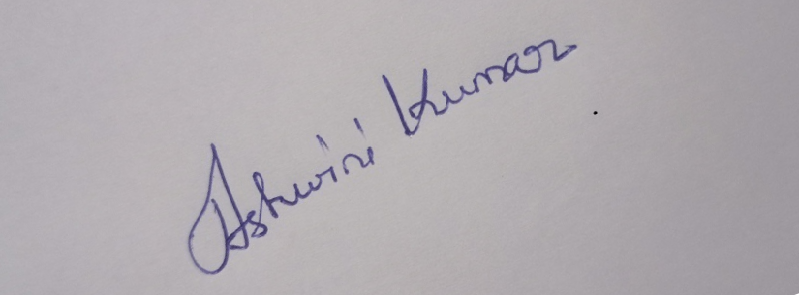 Ashwini Kumar